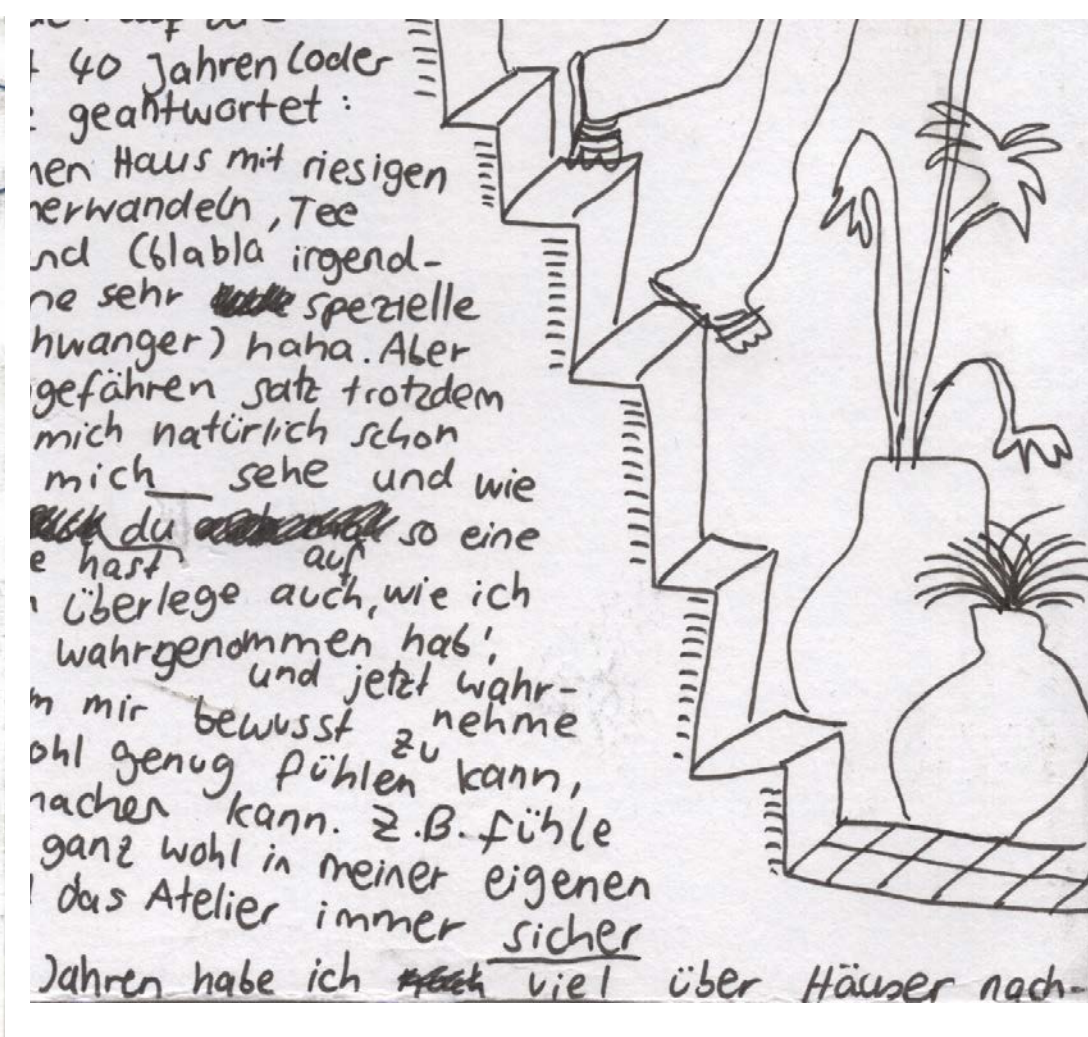 40 Jahren (oder
geantwortet:
nen Haus mit riesigen
nerwandeln, Tee
und (blabla irgend-
ne sehr spezielle
hwanger) haha. Aber
gefähren satz trotzdem
mich natürlich schon
mich sehe und wie
du so eine
e hast auf
überlege auch, wie ich
wahrgenommen hab'
und jetzt wahr-
m mir bewusst nehme
ohl genug fühlen zu kann,
machen kann. Z.B. fühle
ganz wohl in meiner eigenen
das Atelier immer sicher
Jahren habe ich viel über Häuser nach-